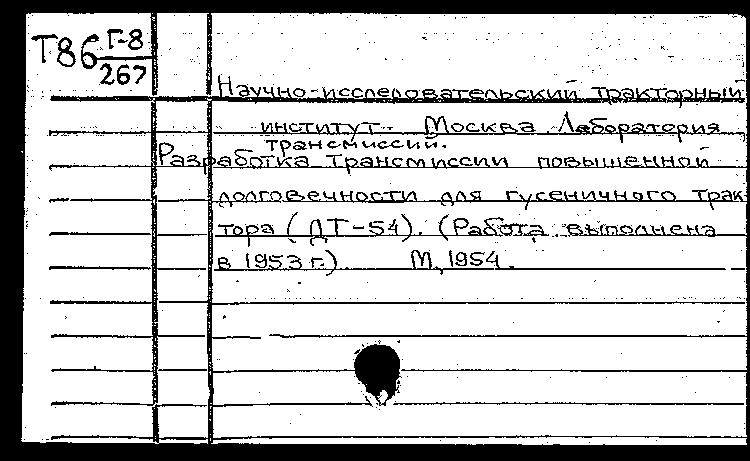 Т86 Г-8
267
Научно-исследовательский тракторный
институт. Москва Лаборатория
трансмиссий.
Разработка трансмиссии повышенной
долговечности для гусеничного трак
тора (ДТ-54). (Работа выполнена
в 1953 г.) М, 1954.